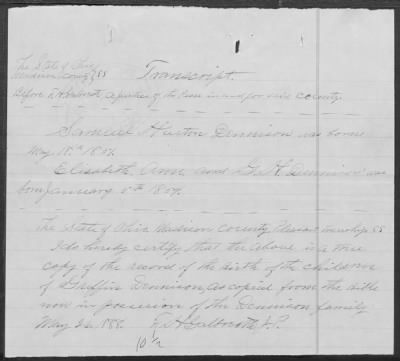 The State of Ohio
Madison County } SS
Transcript.
Before a Justice of the Peace in and for said county.
Samuel Huston Dennison was borne
May 18th 1802
Elisabeth Ann and G. H. Dennison was
born January 8th 1804.
The State of Ohio Madison County Pleasant township SS
I do hereby certify that the above is a true
copy of the record of the birth of the children
of Griffin Dennison, as copied from the bible
now in possession of the Dennison family
May 26 188
J.P.